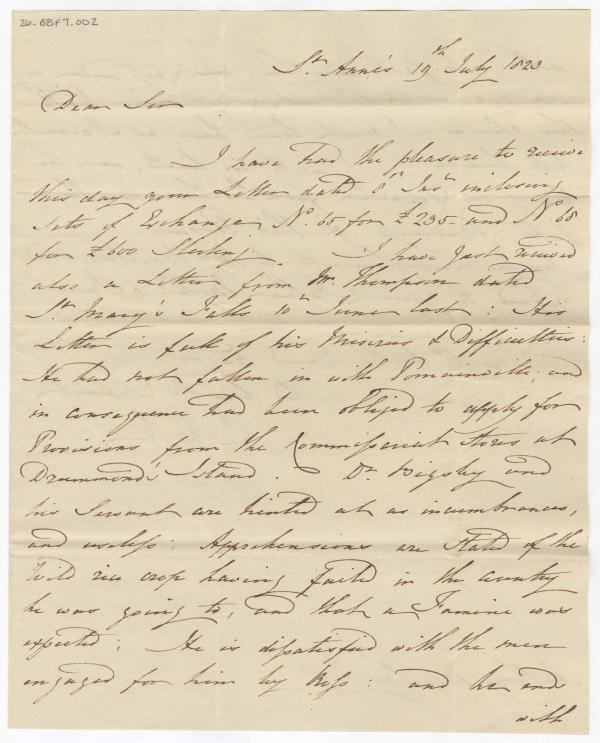 26-BBF7.002
St. Anne's 19th July 1823
Dear Sir
I have had the pleasure to receive
this day your Letter dated 8th Inst. inclosing
Sets of Exchange No. 65 for £235- and No. 68
for £600 Sterling. I have just received
also a Letter from Mr. Thompson dated
St. Mary's Falls 10th June last: His
Letter is full of his Miseries & Difficulties:
He had not fallen in with Pomainville; and
in consequence had been obliged to apply for
Provisions from the Commissariat Stores at
Drummond's Island. Dr. Bigsby and
his Servant are hinted at as incumbrances,
and useless; Apprehensions are Stated of the
Wild rice crop having failed in the Country
he was going to, and that a Famine was
expected; He is dissatisfied with the men
engaged for him by : and he ends
with